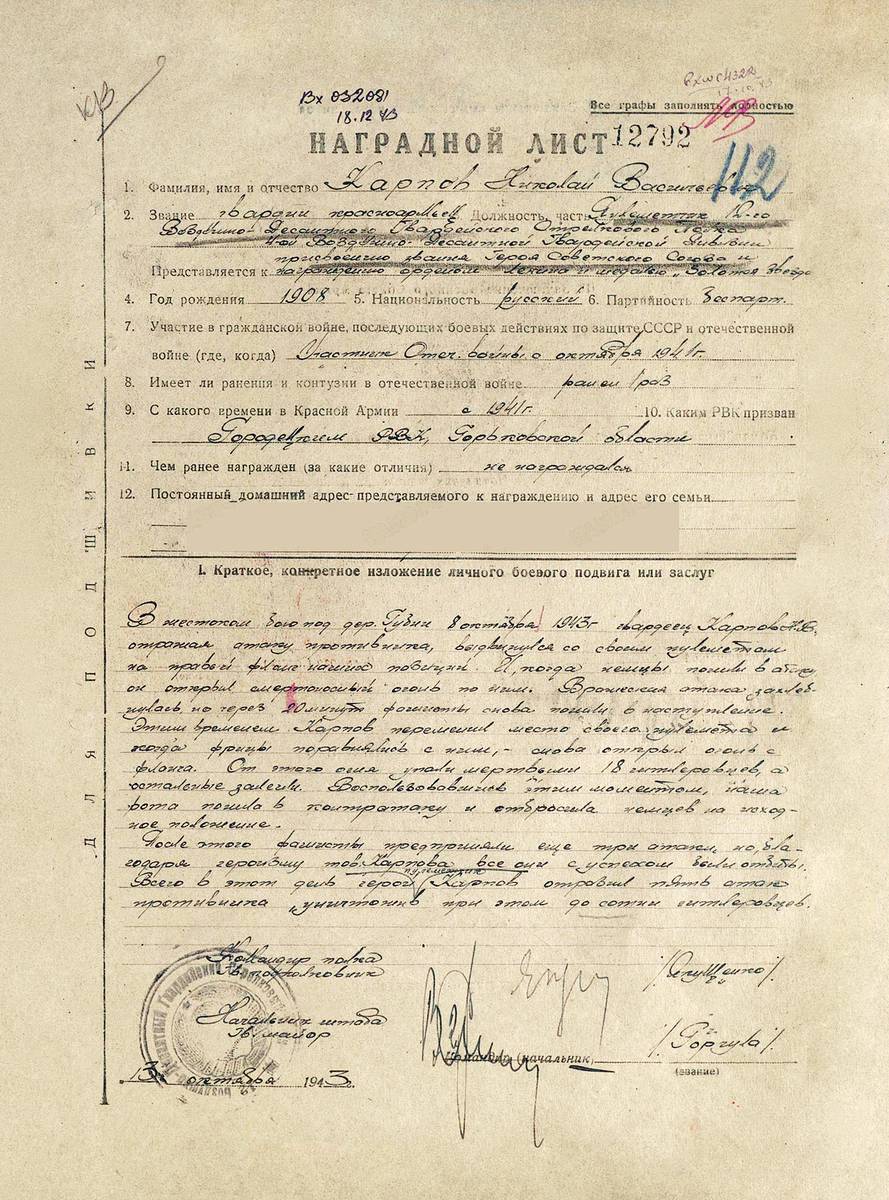 Вх 032081
18.12 43
Все графы заполнять полностью
НАГРАДНОЙ ЛИСТ 12792
112
1. Фамилия, имя и отчество Карпов Николай Васильевич
2. Звание гвардии красноармеец Должность, часть Пулеметчик 12-го
Воздушно-Десантного Гвардейского Стрелкового Полка
4-ой Воздушно-Десантной Гвардейской Дивизии
присвоению звания Героя Советского Союза и
Представляется к награждению орденом Ленина и медалью „Золотая Звезда
4. Год рождения 1908 5. Национальность русский 6. Партийность беспарт.
7. Участие в гражданской войне, последующих боевых действиях по защите СССР и отечественной
войне (где, когда) Участник Отеч. войны с октября 1941г.
8. Имеет ли ранения и контузии в отечественной войне ранен 1 раз
9. С какого времени в Красной Армии с 1941г. 10. Каким РВК призван
Городецким РВК, Горьковской области
11. Чем ранее награжден (за какие отличия) не награждался
12. Постоянный домашний адрес представляемого к награждению и адрес его семьи
I. Краткое, конкретное изложение личного боевого подвига или заслуг
В жестоком бою под дер. Губин 8 октября 1943г гвардеец Карпов Н.В.
отражая атаку противника, выдвинулся со своим пулеметом
на правый фланг наших позиций. И, когда немцы пошли в атаку
он открыл смертоносный огонь по ним. Вражеская атака захлеб-
нулась, но через 20 минут фашисты снова пошли в наступление.
Этим временем Карпов переменил место своего пулемета и
когда фрицы поравнялись с ним, - снова открыл огонь с
фланга. От этого огня упали мертвыми 18 гитлеровцев, а
остальные залегли. Воспользовавшись этим моментом, наша
рота пошла в контратаку и отбросила немцев на исход-
ное положение.
После этого фашисты предприняли еще три атаки, но, бла-
годаря героизму тов. Карпова все они с успехом были отбиты.
Всего в этот день герой пулеметчик Карпов отразил пять атак
противника, уничтожив при этом до сотни гитлеровцев.
Командир полка
Гв. подполковник
Начальник штаба
Гв. майор
/Горгула/.
Командир (начальник)
(звание)
13 октября 1943г.
ДЛЯ ПОДШИВКИ